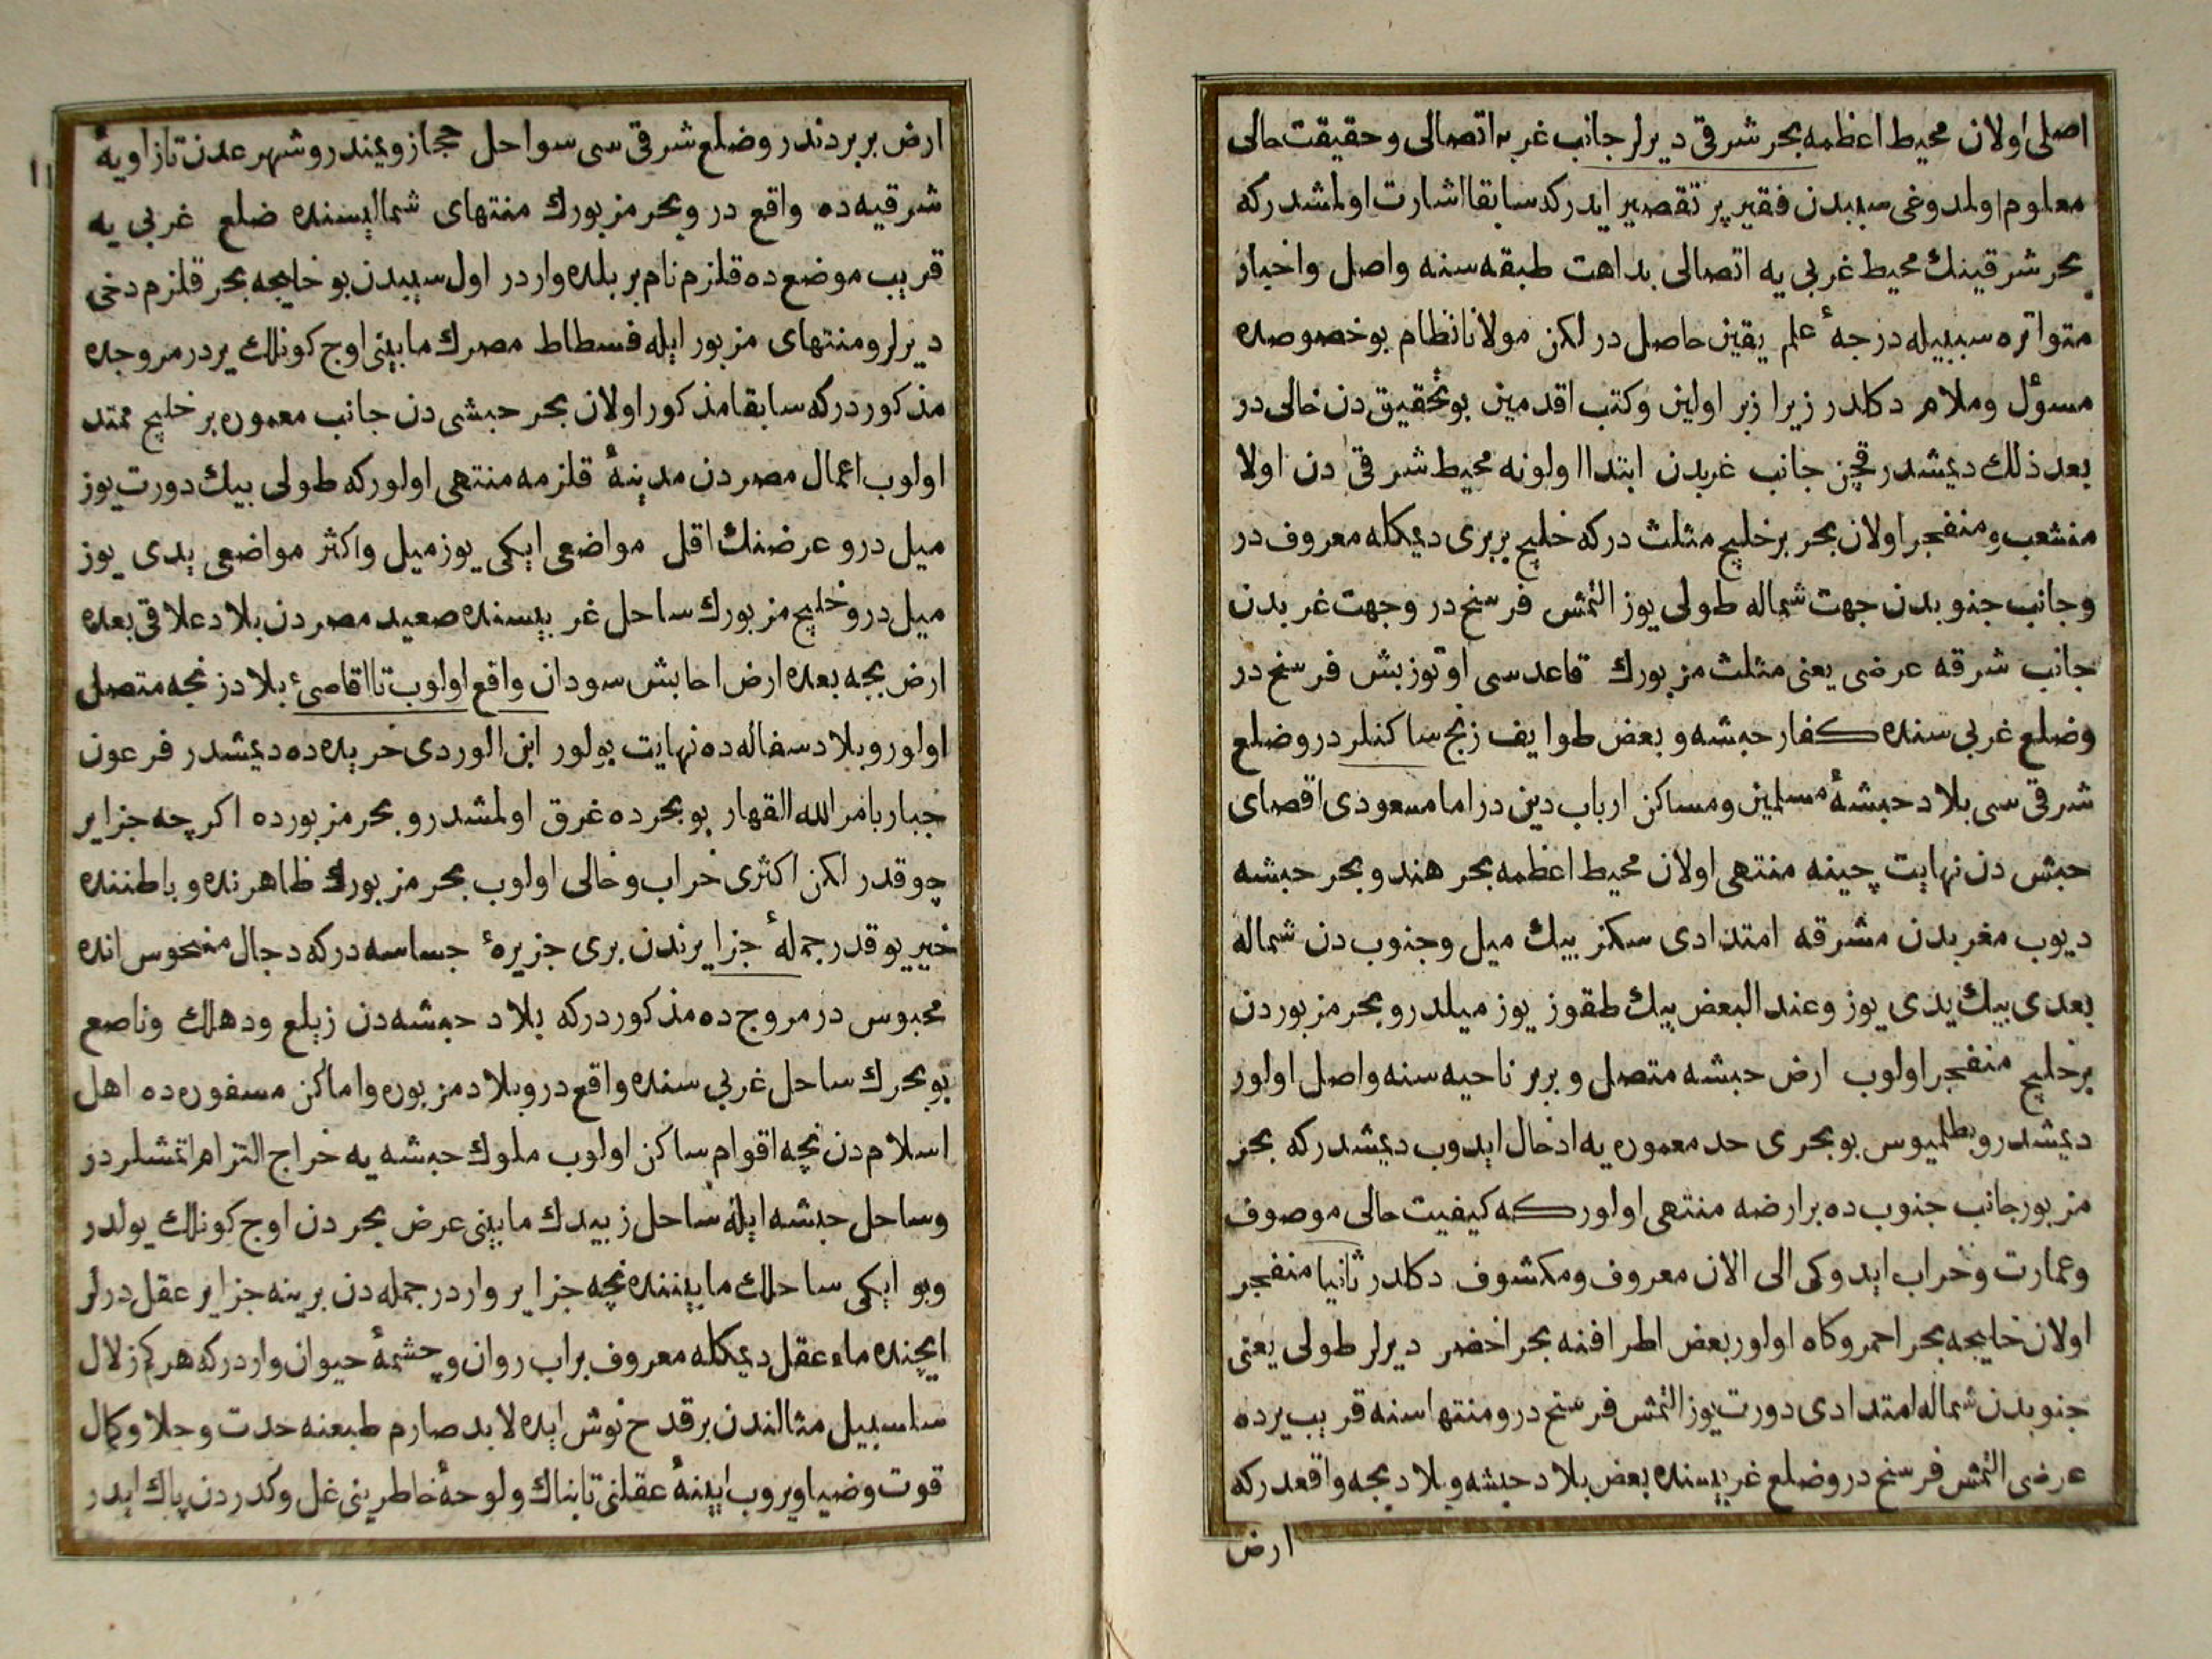 اصلی اولان محیط اعظمه بحر شرقی دیرلر جانب غربه اتصالی و حقیقت حالی
معلوم اولمدوغی سببدن فقیر پر تقصیر ایدرکه سابقا اشارت اولمشدرکه
بحر شرقینك محیط غربی یه اتصالی بداهت طبقه سنه واصل واخبار
متواتره سببیله درجهٔ علم یقین حاصل در لکن مولانا نظام بو خصوصده
مسؤل وملام دکلدر زیرا زبر اولین وکتب اقدمین بو تحقیق دن خالی در
بعد ذلك دیمشدر قچن جانب غربدن ابتدا اولونه محیط شرقی دن اولا
منشعب و منفجر اولان بحر بر خلیج مثلث درکه خلیج بربری دیمکله معروف در
وجانب جنوبدن جهت شماله طولی یوز التمش فرسنح در وجهت غربدن
جانب شرقه عرضی یعنی مثلث مزبورك قاعدسی اوتوز بش فرسنح در
وضلع غربی سنده کفار حبشه و بعض طوایف زنج ساکنلر در وضلع
شرقی سی بلاد حبشهٔ مسلمین ومساکن ارباب دین در اما مسعودی اقصای
حبش دن نهایت چینه منتهی اولان محیط اعظمه بحر هند و بحر حبشه
دیوب مغربدن مشرقه امتدادی سکز بیك میل وجنوب دن شماله
بعدی بیك یدی یوز وعند البعض بیك طقوز یوز میلدر و بحر مزبوردن
بر خلیج منفجر اولوب ارض حبشه متصل و بربر ناحیه سنه واصل اولور
دیمشدر و بطلمیوس بو بحری حد معموره یه ادخال ایدوب دیمشدرکه بحر
مزبور جانب جنوب ده بر ارضه منتهی اولورکه کیفیت حالی موصوف
وعمارت وخراب ایدوکی الی الان معروف ومکشوف دکلدر ثانیا منفجر
اولان خلیجه بحر احمر وکاه اولور بعض اطرافنه بحر اخضر دیرلر طولی یعنی
جنوبدن شماله امتدادی دورت یوز التمش فرسنح در ومنتهاسنه قریب یرده
عرضی التمش فرسنح در وضلع غربیسنده بعض بلاد حبشه و بلاد بجه واقعدرکه
ارض
١١
ارض بربردندر وضلع شرقی سی سواحل حجاز ویمندر وشهر عدن تا زاویهٔ
شرقیه ده واقع در و بحر مزبورك منتهای شمالیسنده ضلع غربی یه
قریب موضع ده قلزم نام بر بلده واردر اول سببدن بو خلیجه بحر قلزم دخی
دیرلر ومنتهای مزبور ایله فسطاط مصرك مابینی اوج کونلك یردر مروجده
مذکوردرکه سابقا مذکور اولان بحر حبشی دن جانب معموره بر خلیج ممتد
اولوب اعمال مصردن مدینهٔ قلزمه منتهی اولورکه طولی بیك دورت یوز
میل در و عرضنك اقل مواضعی ایکی یوز میل واکثر مواضعی یدی یوز
میل در و خلیج مزبورك ساحل غربیسنده صعید مصردن بلاد علاقی بعده
ارض بجه بعده ارض احابش سودان واقع اولوب تا اقاصئ بلاد زنجه متصل
اولور و بلاد سفاله ده نهایت بولور ابن الوردی خریده ده دیمشدر فرعون
جبار بامر الله القهار بو بحرده غرق اولمشدر و بحر مزبورده اکرچه جزایر
چوقدر لکن اکثری خراب وخالی اولوب بحر مزبورك ظاهرنده و باطننده
خیر یوقدر جملهٔ جزایرندن بری جزیرهٔ جساسه درکه دجال منحوس انده
محبوس در مروج ده مذکوردرکه بلاد حبشه دن زیلع ودهلك وناصع
بو بحرك ساحل غربی سنده واقع در و بلاد مزبوره واماکن مسفوره ده اهل
اسلام دن نچه اقوام ساکن اولوب ملوك حبشه یه خراج التزام اتمشلردر
وساحل حبشه ایله ساحل زبیدك مابینی عرض بحردن اوج کونلك یولدر
وبو ایکی ساحلك مابیننده نچه جزایر واردر جمله دن برینه جزایر عقل درلر
ایچنده ماء عقل دیمکله معروف بر اب روان و چشمهٔ حیوان واردرکه هر کم زلال
سلسبیل مثالندن بر قدح نوش ایده لابد صارم طبعنه حدت وجلا وکمال
قوت وضیا ویروب ایینهٔ عقلنی تابناك ولوحهٔ خاطرینی غل وکدردن پاك ایدر